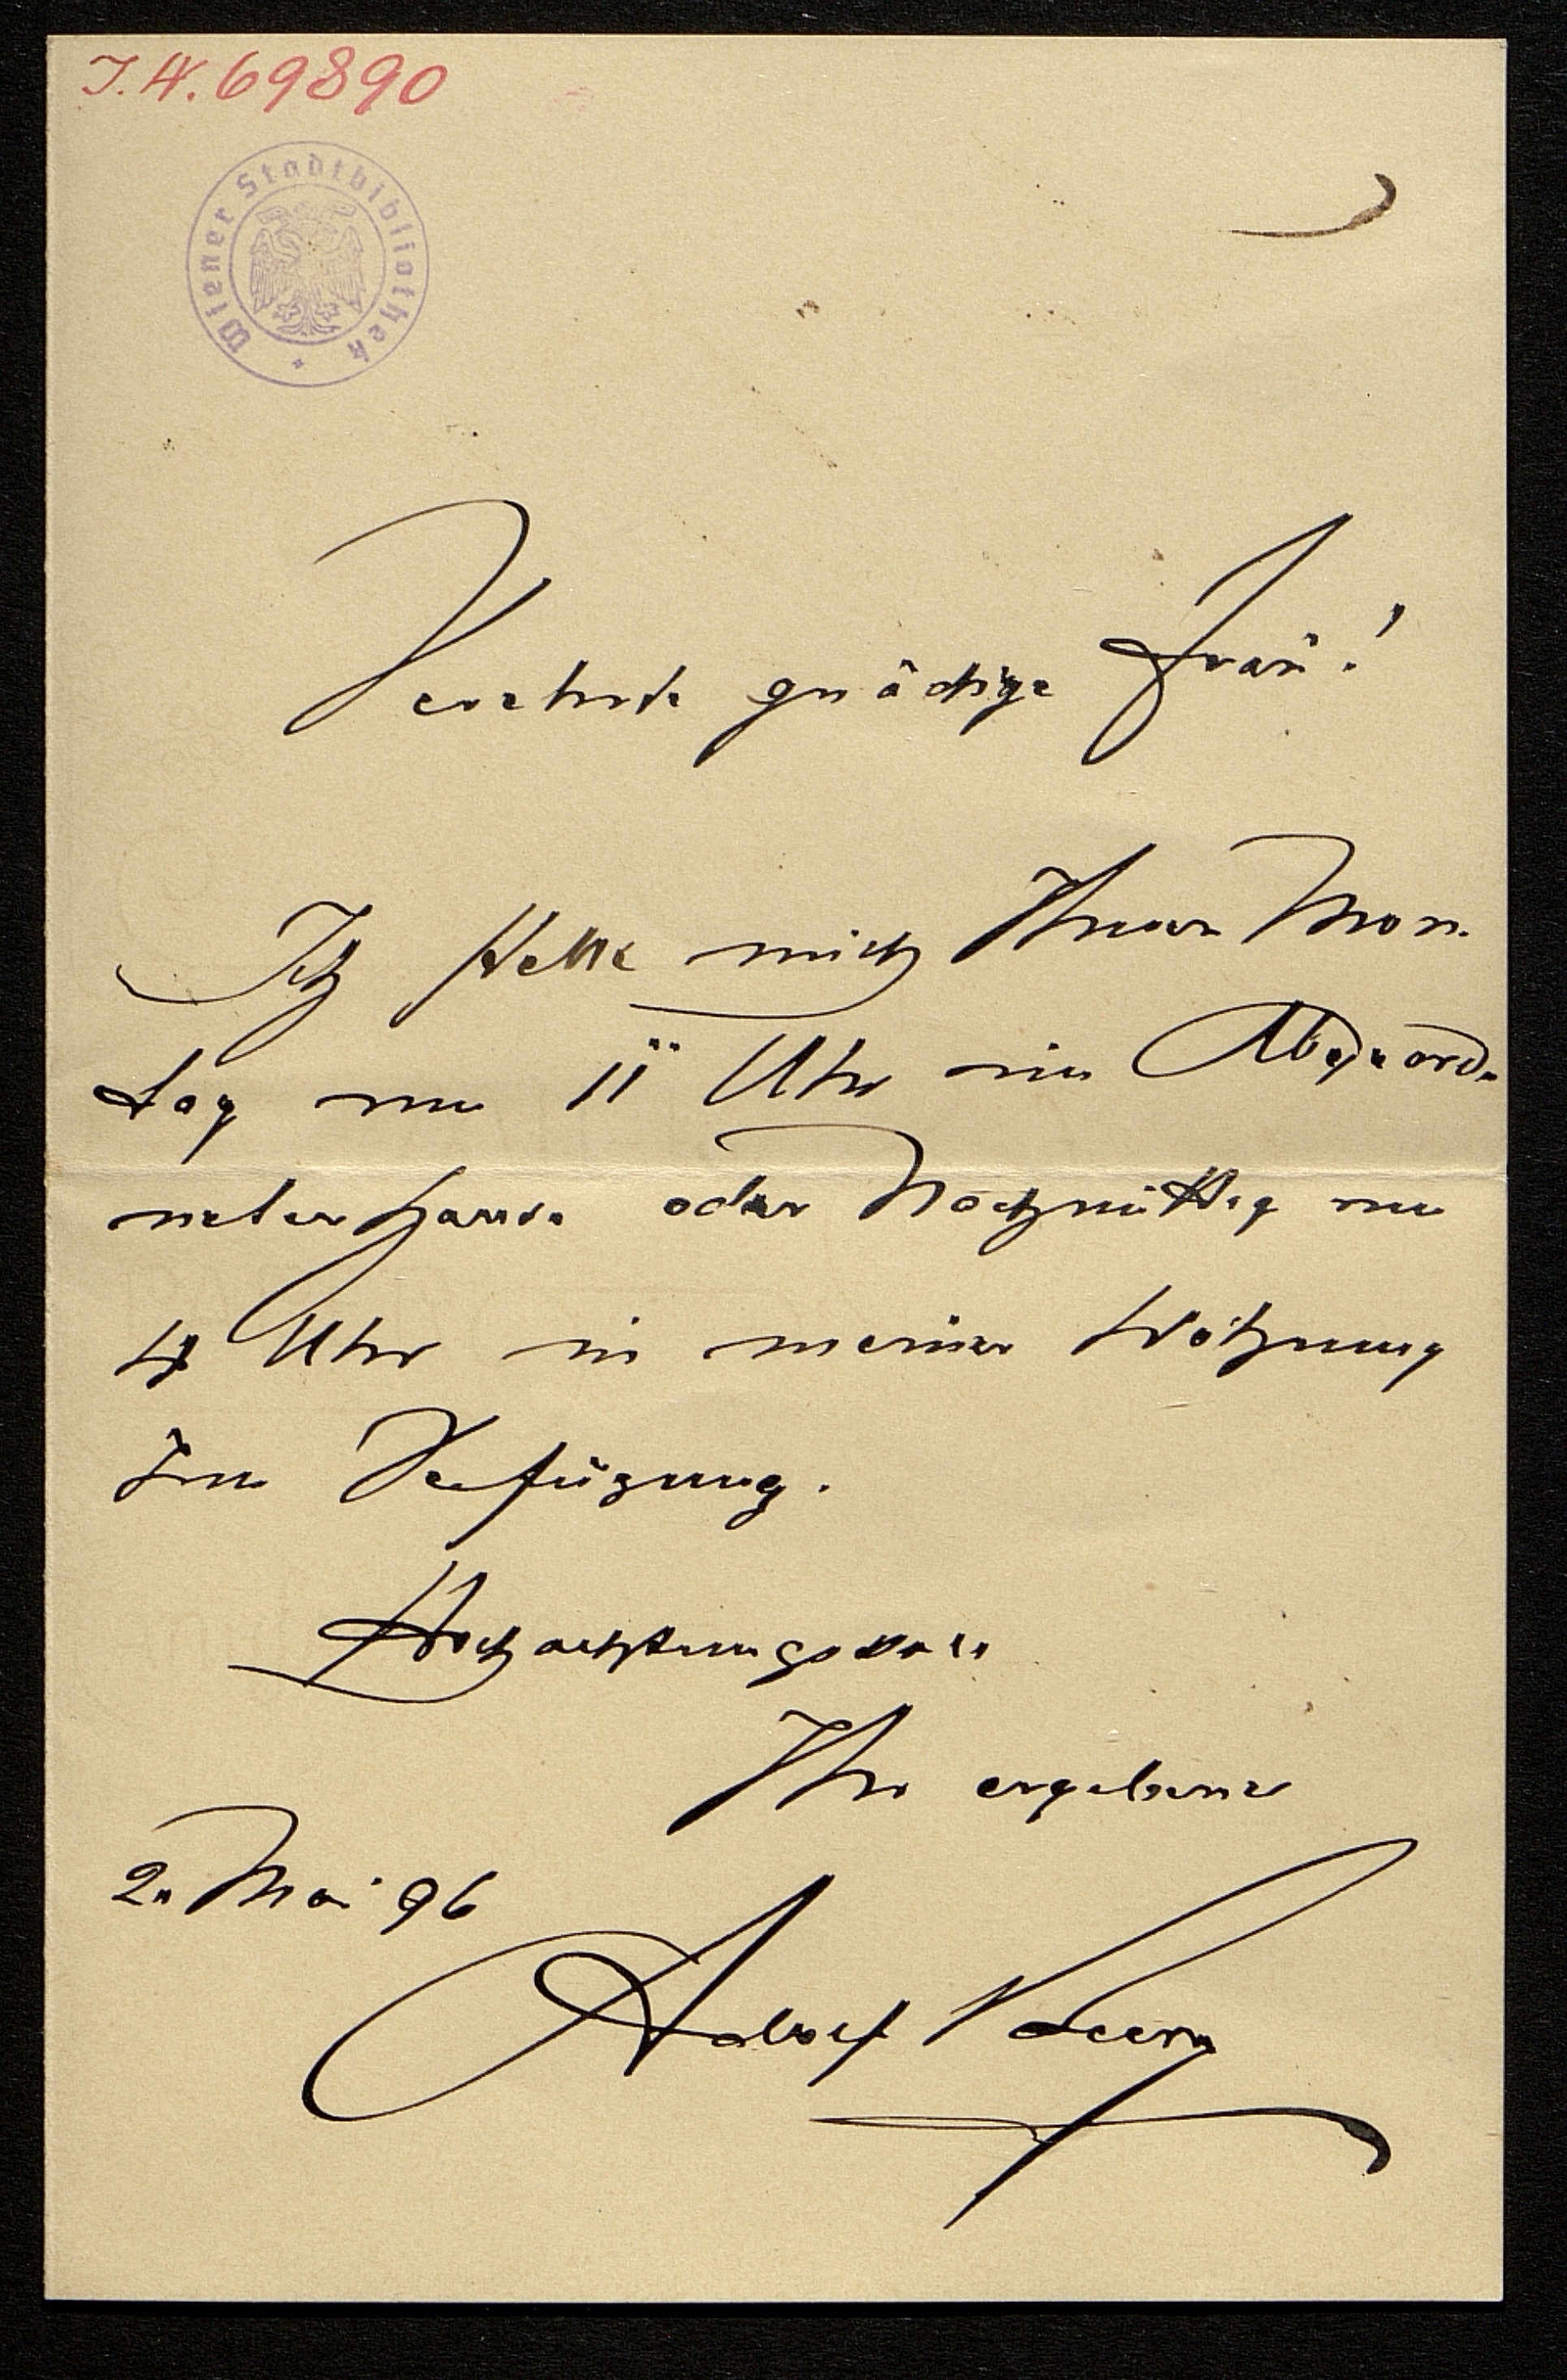 I. N. 69890
Wiener Stadtbibliothek
Verehrte gnädige Frau!
Ich stelle mich Ihnen Mon-
tag um 11 Uhr im Abgeord-
netenhause oder Nachmittag um
4 Uhr in meiner Wohnung
zur Verfügung.
Hochachtungsvoll
Ihr ergebener
2. Mai 96
Adolf